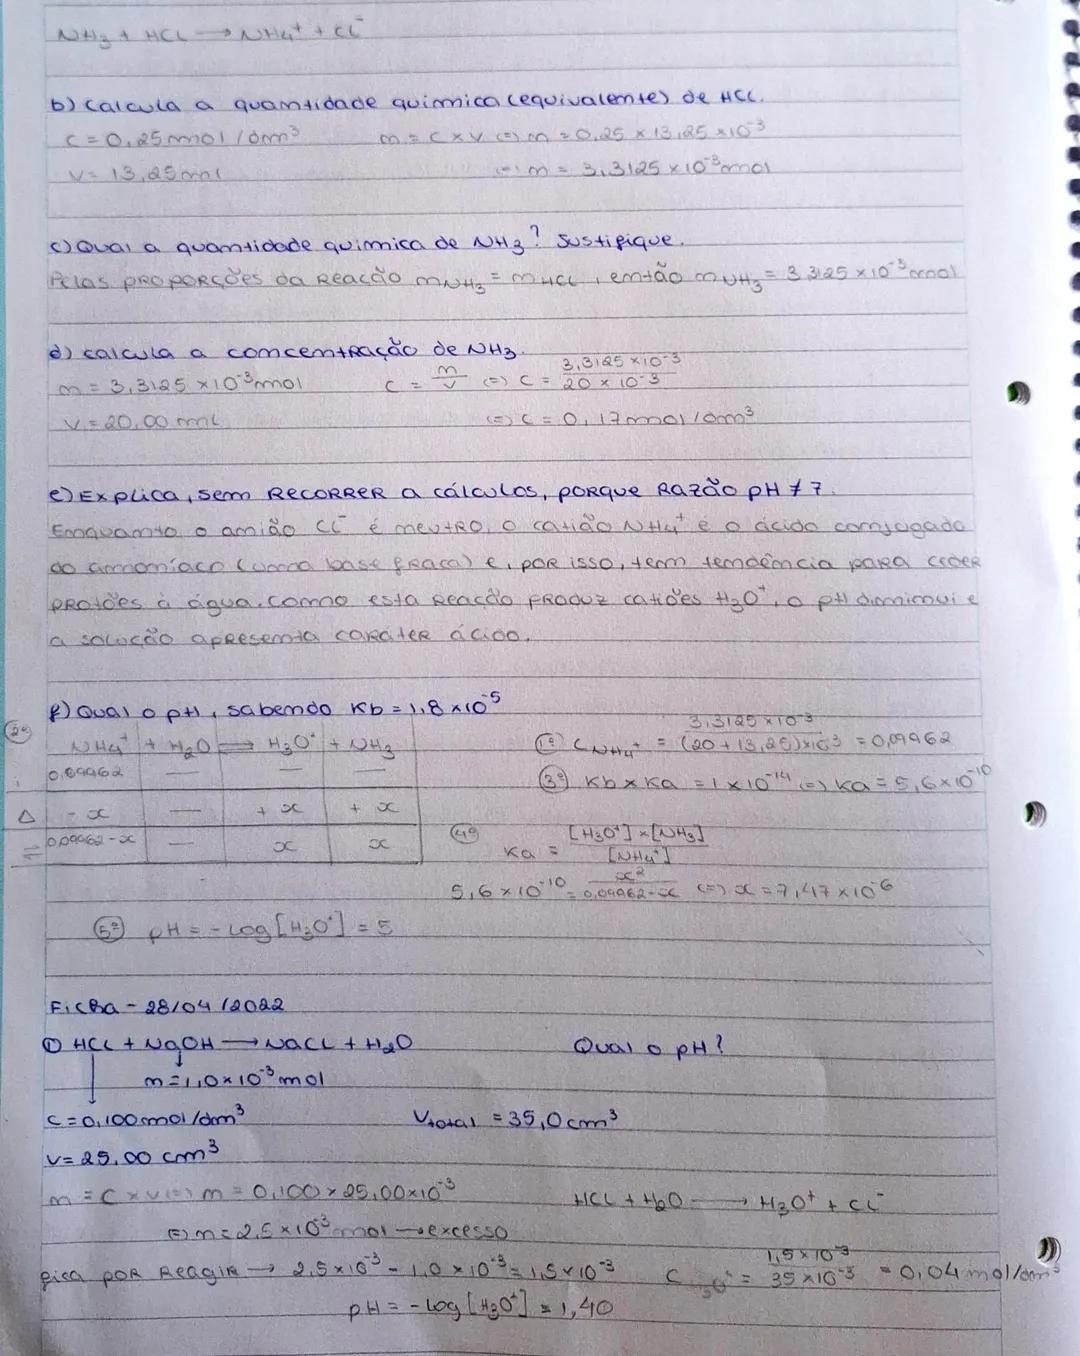 NH₃ + HCl → NH₄⁺ + Cl⁻
b) Calcula a quantidade química (equivalente) de HCl.
c = 0,25 mol/dm³ n = c × v (=) n = 0,25 × 13,25 × 10⁻³
V = 13,25 mL (=) n = 3,3125 × 10⁻³ mol
c) Qual a quantidade química de NH₃? Justifique.
Pelas proporções da reação n NH₃ = n HCl, então n NH₃ = 3,3125 × 10⁻³ mol
d) calcula a concentração de NH₃.
n = 3,3125 × 10⁻³ mol c = n/v (=) c = 3,3125 × 10⁻³ / 20 × 10⁻³
V = 20,00 mL (=) c = 0,17 mol/dm³
e) Explica, sem recorrer a cálculos, porque razão pH ≠ 7.
Enquanto o anião Cl⁻ é neutro, o catião NH₄⁺ é o ácido conjugado
do amoníaco (uma base fraca) e, por isso, tem tendência para ceder
protões à água. Como esta reação produz catiões H₃O⁺, o pH diminui e
a solução apresenta caráter ácido.
f) Qual o pH, sabendo Kb = 1,8 × 10⁻⁵
2º NH₄⁺ + H₂O ⇌ H₃O⁺ + NH₃ 1º C NH₄⁺ = 3,3125 × 10⁻³ / (20 + 13,25) × 10⁻³ = 0,09962
i 0,09962 — — — 3º Kb × Ka = 1 × 10⁻¹⁴ (=) Ka = 5,6 × 10⁻¹⁰
Δ - x — + x + x
⇌ 0,09962 - x — x x 4º Ka = [H₃O⁺] × [NH₃] / [NH₄⁺]
5,6 × 10⁻¹⁰ = x² / 0,09962 - x (=) x = 7,47 × 10⁻⁶
5º pH = - log [H₃O⁺] = 5
Ficha - 28/04/2022
① HCl + NaOH → NaCl + H₂O Qual o pH?
n = 1,0 × 10⁻³ mol
c = 0,100 mol/dm³ Vtotal = 35,0 cm³
V = 25,00 cm³
n = c × v (=) n = 0,100 × 25,00 × 10⁻³ HCl + H₂O → H₃O⁺ + Cl⁻
(=) n = 2,5 × 10⁻³ mol → excesso
fica por reagir → 2,5 × 10⁻³ - 1,0 × 10⁻³ = 1,5 × 10⁻³ C H₃O⁺ = 1,5 × 10⁻³ / 35 × 10⁻³ = 0,04 mol/dm³
pH = - log [H₃O⁺] = 1,40